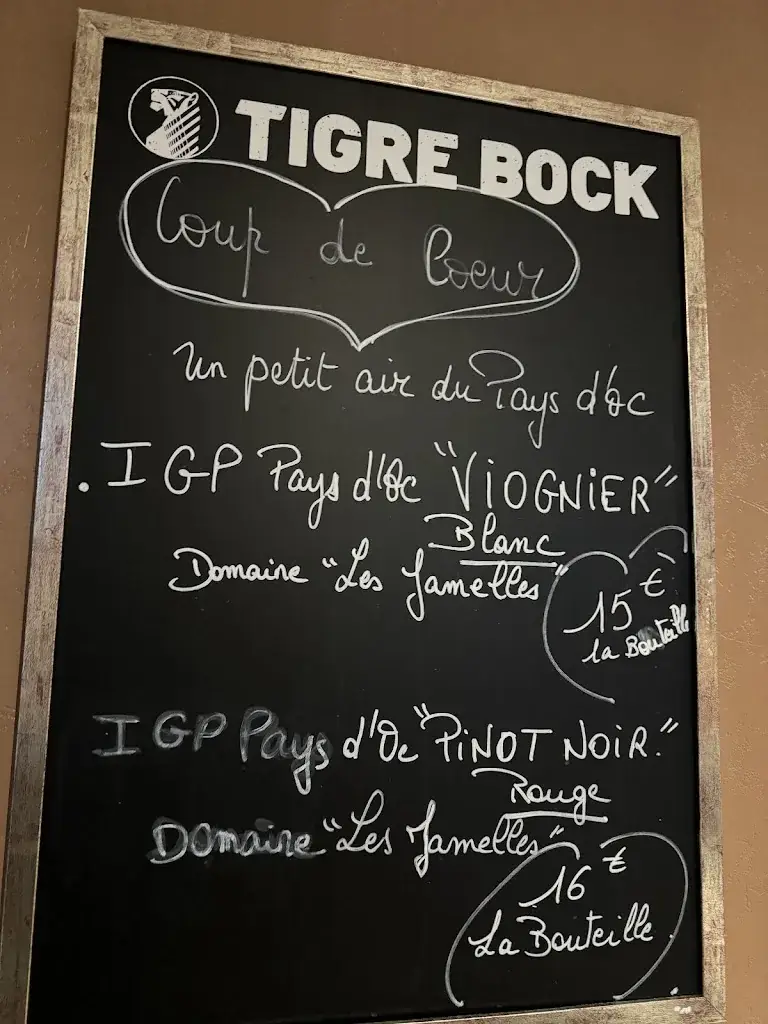 TIGRE BOCK
Coup de Coeur
Un petit air du Pays d'Oc
. IGP Pays d'Oc "ViOGNiER"
Blanc
Domaine "Les Jamelles"
15 €
la Bouteille
IGP Pays d'Oc "PiNOT NOiR."
Rouge
Domaine "Les Jamelles"
16 €
La Bouteille.